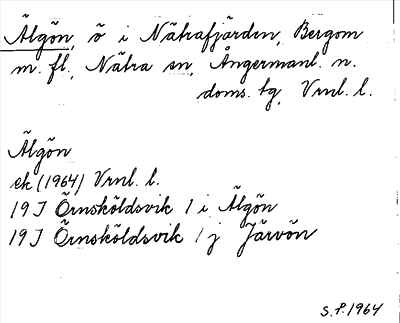 Älgön, ö i Nätrafjärden, Bergom
m. fl., Nätra sn, Ångermanl. n.
doms. tg, Vrnl. l.
Älgön
ek (1964) Vrnl. l.
19 J Örnsköldsvik 1 i Älgön
19 J Örnsköldsvik 1 j Järvön
S. P. 1964